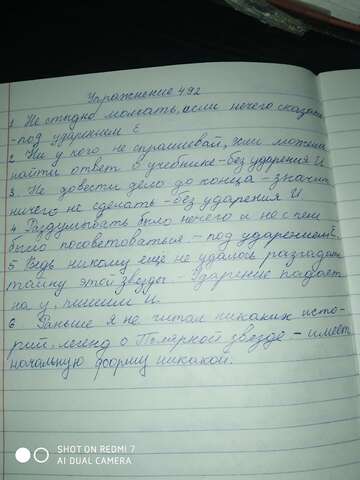 Упражнение 492
1 Не стыдно молчать, если нечего сказать
-под ударением Е
2 Ни у кого не спрашивай, или можешь
найти ответ в учебнике-без ударения И
3 Не довести дело до конца - значит
ничего не сделать - без ударения И
4 Раздумывать было нечего и не с кем
было посоветоваться - под ударением Е
5 Ведь никому ещё не удалось разгадать
тайну этой звезды. - Ударение падает
на у, пишим И.
6 Раньше я не читал никаких исто-
рий, легенд о Полярной звезде - имеет
начальную форму никакой.
SHOT ON REDMI 7
AI DUAL CAMERA